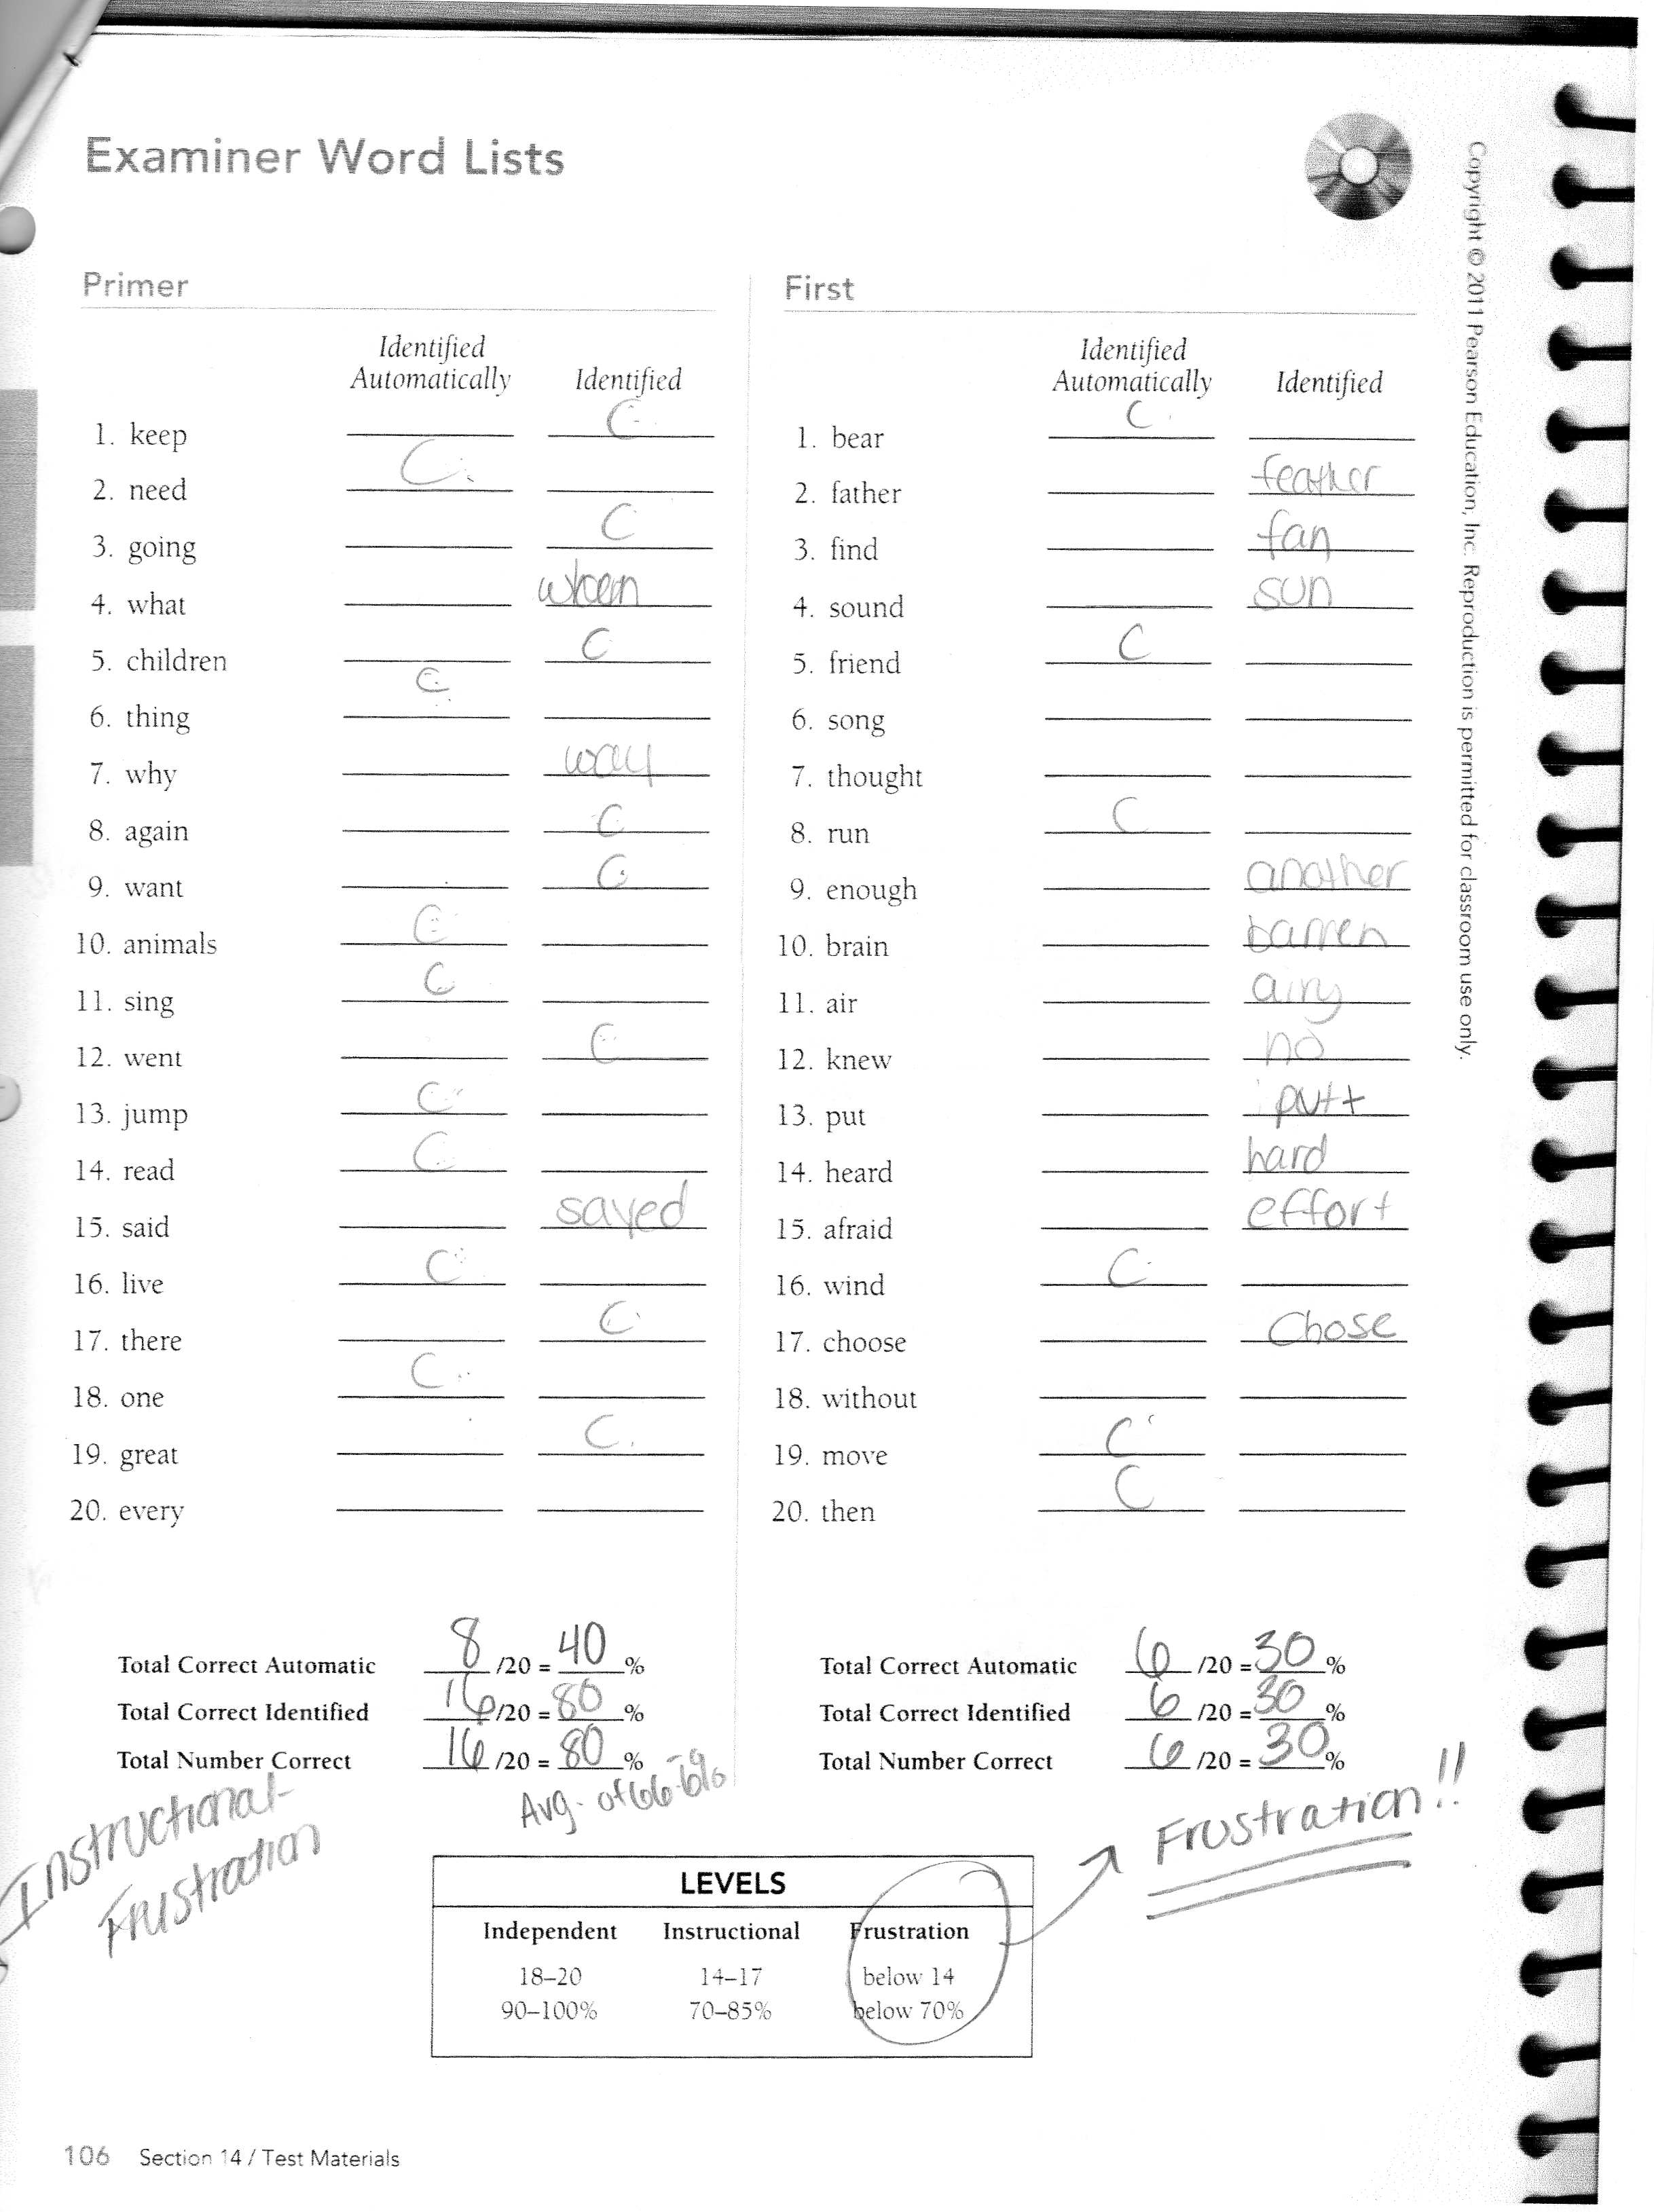 Examiner Word Lists
Primer
Identified
Automatically Identified
1. keep C
2. need C
3. going C
4. what when
5. children C
6. thing C
7. why way
8. again C
9. want C
10. animals C
11. sing C
12. went C
13. jump C
14. read C
15. said sayed
16. live C
17. there C
18. one C
19. great C
20. every
Total Correct Automatic 8 /20 = 40 %
Total Correct Identified 16 /20 = 80 %
Total Number Correct 16 /20 = 80 %
Avg. of 66.6%
Instructional-
Frustration
First
Identified
Automatically Identified
1. bear C
2. father feather
3. find fan
4. sound sun
5. friend C
6. song
7. thought
8. run C
9. enough another
10. brain barren
11. air airy
12. knew no
13. put putt
14. heard hard
15. afraid effort
16. wind C
17. choose Chose
18. without
19. move C
20. then C
Total Correct Automatic 6 /20 = 30 %
Total Correct Identified 6 /20 = 30 %
Total Number Correct 6 /20 = 30 %
Frustration!!
LEVELS
Independent Instructional Frustration
18–20 14–17 below 14
90–100% 70–85% below 70%
106 Section 14 / Test Materials
Copyright © 2011 Pearson Education, Inc. Reproduction is permitted for classroom use only.